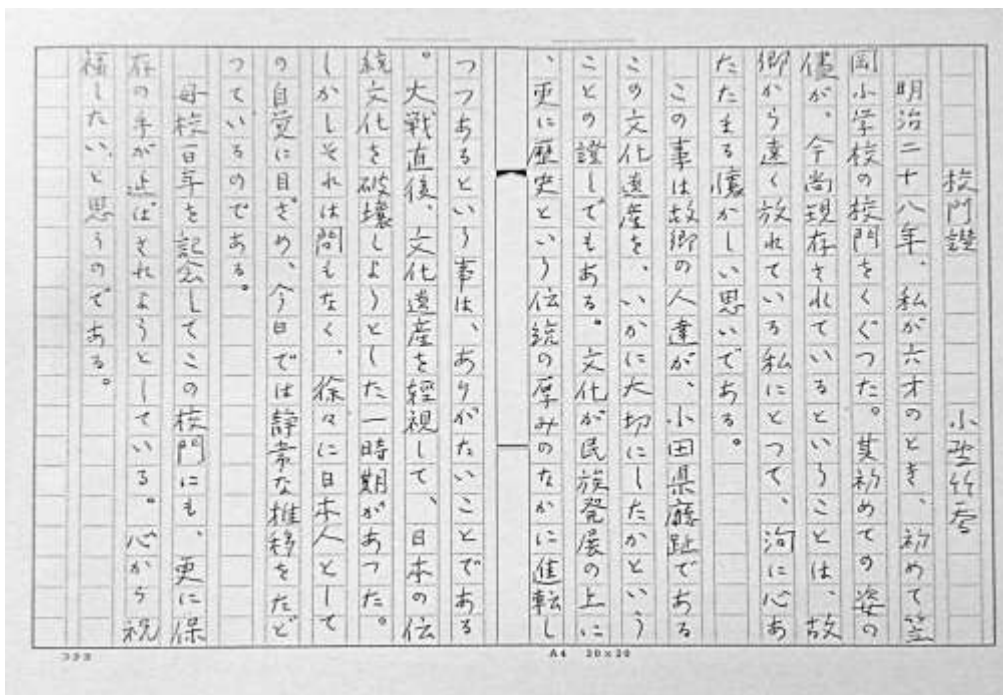 校門讃　　　小野竹喬
明治二十八年、私が六才のとき、初めて笠
岡小学校の校門をくぐつた。其初めての姿の
儘が、今尚現存されているということは、故
郷から遠く放れている私にとつて、洵に心あ
たたまる懐かしい思いである。
この事は故郷の人達が、小田県廳趾である
この文化遺産を、いかに大切にしたかという
ことの證しでもある。文化が民族発展の上に
、更に歴史という伝統の厚みのなかに進転し
つつあるという事は、ありがたいことである
。大戦直後、文化遺産を軽視して、日本の伝
統文化を破壊しようとした一時期があつた。
しかしそれは間もなく、徐々に日本人として
の自覚に目ざめ、今日では静常な推移をたど
つているのである。
母校百年を記念してこの校門にも、更に保
存の手が延ばされようとしている。心から祝
福したい、と思うのである。
コクヨ
A4 20×20